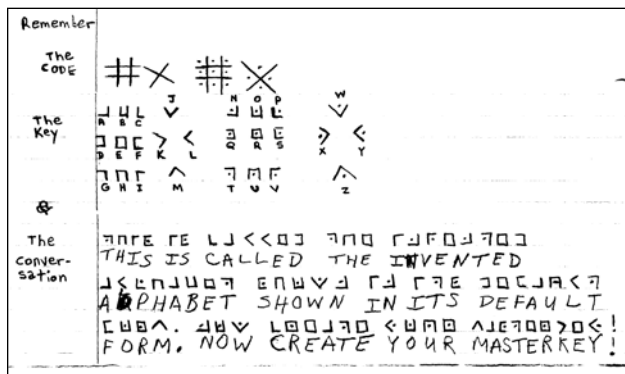 Remember
The
CODE
J
N O P
W
The
Key
A B C
Q R S
X Y
D E F K L
G H I M T U V Z
&
The
conver-
sation
THIS IS CALLED THE INVENTED
ALPHABET SHOWN IN ITS DEFAULT
FORM. NOW CREATE YOUR MASTERKEY!